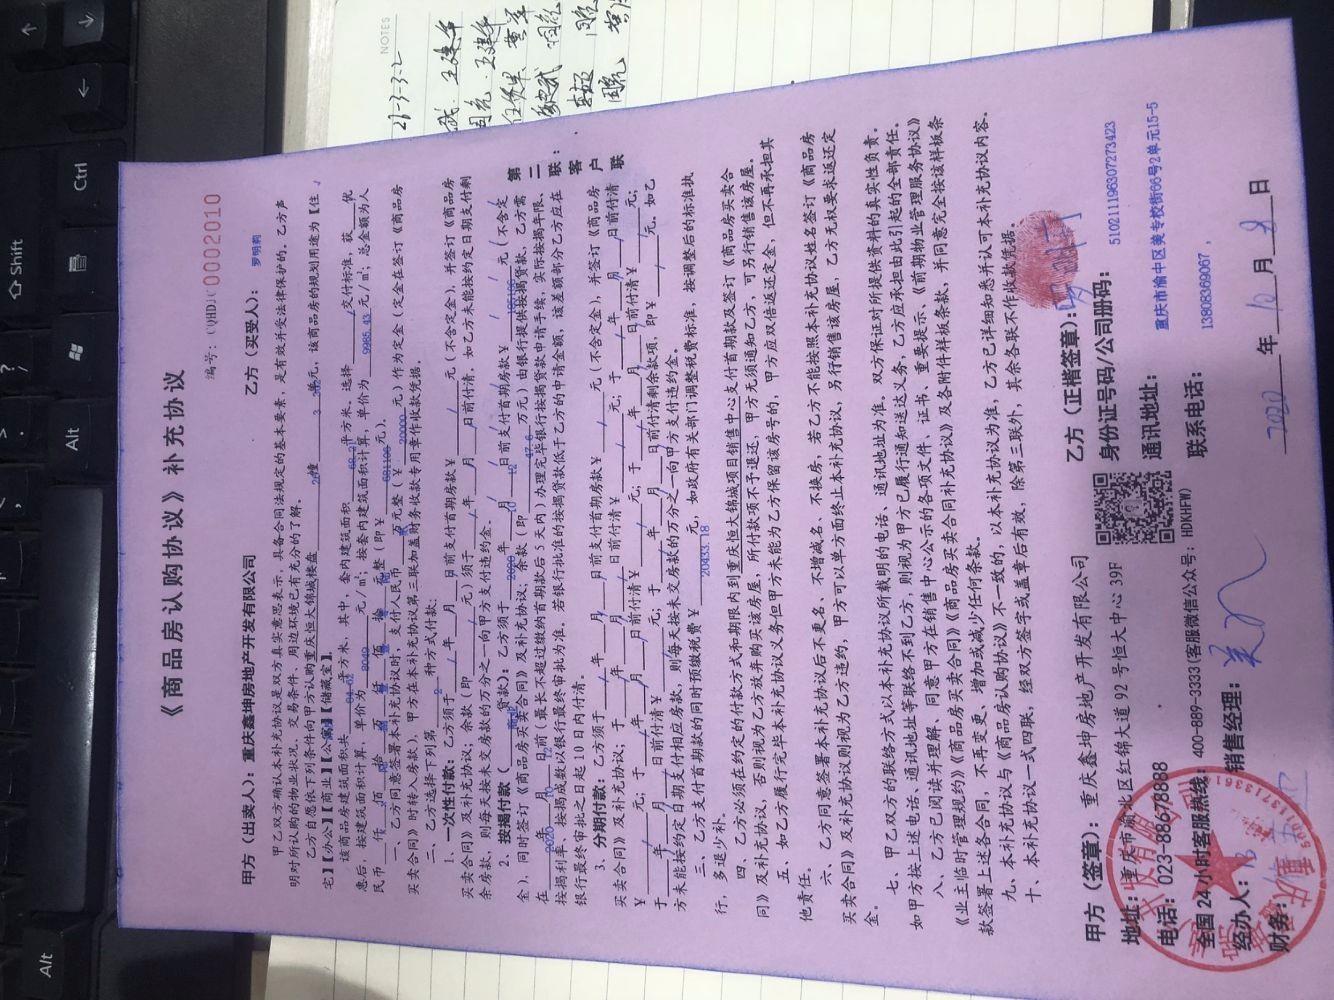 《商品房认购协议》补充协议
编号：(YHDJ(0002010
甲方（出卖人）：重庆鑫坤房地产开发有限公司 乙方（买受人）： 罗明莉
甲乙双方确认本补充协议是双方真实意思表示，具备合同法规定的基本要素，是有效并受法律保护的，乙方声
明对所认购的物业状况、交易条件、周边环境已有充分的了解。
乙方自愿依下列条件向甲方认购重庆恒大锦城楼盘 幢 单元，该商品房的规划用途为【住
宅】【办公】【商业】【公寓】【储藏室】。
该商品房建筑面积共 平方米，其中，套内建筑面积 平方米，选择 交付标准，获 优
惠后，按建筑面积计算，单价为 8049 元/㎡；按套内建筑面积计算，单价为 9985.43 元/㎡，总金额为人
民币 仟 佰 拾 万 仟 佰 拾 元整（即￥ 681106 元）。
一、乙方同意签署本补充协议时，支付人民币 万元整（￥ 20000 元）作为定金（定金在签订《商品房
买卖合同》时转入房款），甲方在本补充协议第三联加盖财务收款专用章作收款凭据。
二、乙方选择下列第 2 种方式付款：
1、一次性付款：乙方须于 / 年 / 月 / 日前支付首期房款￥ / 元（不含定金），并签订《商品房
买卖合同》及补充协议；余款（即 / 元）须于 / 年 / 月 / 日前付清，如乙方未能按约定日期支付剩
余房款，则每天按未交房款的万分之一向甲方支付违约金。
2、按揭付款（ 商业 贷款）：乙方须于 2020 年 10 月 12 日前支付首期房款￥ 元（不含定
金），同时签订《商品房买卖合同》及补充协议；余款（即 47.6 万元）由银行提供按揭贷款，乙方需
在 2020 年 10 月 12 日前（最长不超过缴纳首期款后5天内）办理完毕银行按揭贷款申请手续，实际按揭年限、
按揭利率、按揭成数以银行最终审批为准。若银行批准的按揭贷款低于乙方的申请金额，该差额部分乙方应在
银行最终审批之日起10日内付清。
3、分期付款：乙方须于 / 年 / 月 / 日前支付首期房款￥ / 元（不含定金），并签订《商品房
买卖合同》及补充协议；于 / 年 / 月 / 日前付清￥ / 元；于 / 年 / 月 / 日前付清
￥ / 元；于 / 年 / 月 / 日前付清￥ / 元；于 / 年 / 月 / 日前付清￥ / 元；
于 / 年 / 月 / 日前付清￥ / 元；于 / 年 / 月 / 日前付清剩余款项，即￥ / 元，如乙
方未能按约定日期支付相应房款，则每天按未交房款的万分之一向甲方支付违约金。
三、乙方支付首期款的同时预缴税费￥ 20433.18 元，如政府有关部门调整税费标准，按调整后的标准执
行，多退少补。
四、乙方必须在约定的付款方式和期限内到重庆恒大锦城项目销售中心支付首期款及签订《商品房买卖合
同》及补充协议，否则视为乙方放弃购买该房屋，所付款项不予退还，甲方无须通知乙方，可另行销售该房屋。
五、如乙方履行完毕本补充协议义务但甲方未能为乙方保留该房号的，甲方应双倍返还定金，但不再承担其
他责任。
六、乙方同意签署本补充协议后不更名、不增减名、不换房，若乙方不能按照本补充协议姓名签订《商品房
买卖合同》及补充协议则视为乙方违约，甲方可以单方面终止本补充协议，另行销售该房屋，乙方无权要求退还定
金。
七、甲乙双方的联络方式以本补充协议所载明的电话、通讯地址为准，双方保证对所提供资料的真实性负责。
如甲方按上述电话、通讯地址等联络不到乙方，则视为甲方已履行通知送达义务，乙方应承担由此引起的全部责任。
八、乙方已阅读并理解、同意甲方在销售中心公示的各项文件、证书、重要提示、《前期物业管理服务协议》
《业主临时管理规约》《商品房买卖合同》《商品房买卖合同补充协议》及各附件样板条款，并同意完全按该样板条
款签署上述各合同，不再变更、增加或减少任何条款。
九、本补充协议与《商品房认购协议》不一致的，以本补充协议为准，乙方已详细知悉并认可本补充协议内容。
十、本补充协议一式四联，经双方签字或盖章后有效，除第三联外，其余各联不作收款凭据。
第二联：客户联
甲方（签章）：重庆鑫坤房地产开发有限公司 乙方（正楷签章）：
地址：重庆市渝北区红锦大道92号恒大中心39F 身份证号码/公司册码： 510211196307273423
电话：023-88678888 通讯地址： 重庆市渝中区美专校街66号2单元15-5
全国24小时客服热线：400-889-3333(客服微信公众号：HDKHFW) 联系电话： 13808369067，
经办人： 销售经理：
财务： 2020 年 10 月 8 日
NOTES
21-3-3-2
Shift
Ctrl
Alt
Alt